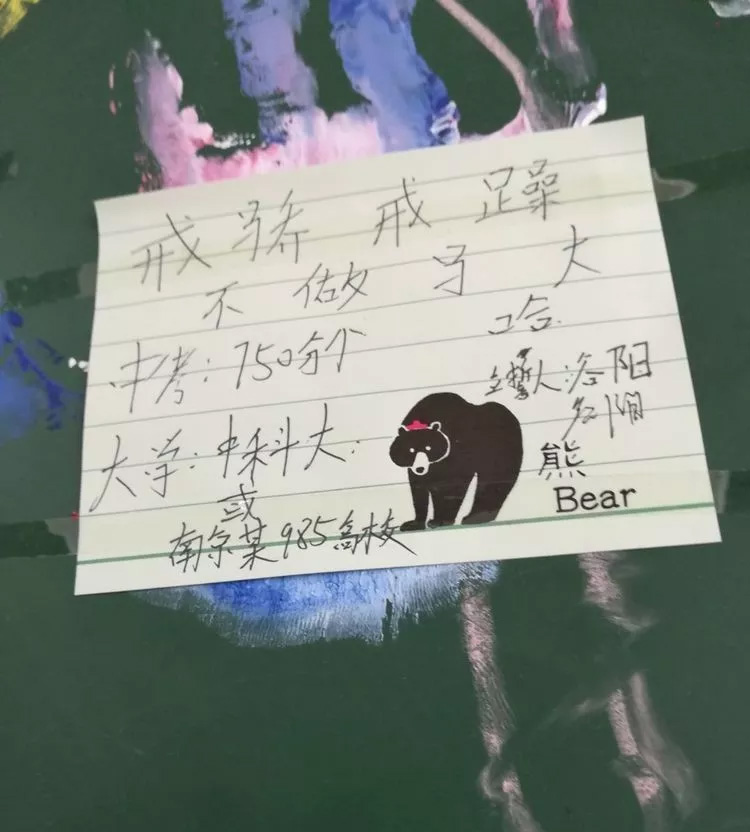 戒骄戒躁
不做号大
哈
中考:750分个
大学:中科大.
或
南京某985高校
人:洛阳
熊
Bear